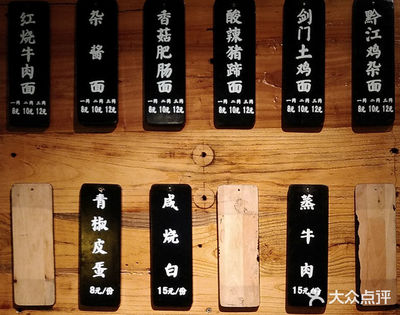 红烧牛肉面
一两 二两 三两
8元 10元 12元
杂酱面
一两 二两 三两
8元 10元 12元
香菇肥肠面
一两 二两 三两
8元 10元 12元
酸辣猪蹄面
一两 二两 三两
8元 10元 12元
剑门土鸡面
一两 二两 三两
8元 10元 12元
黔江鸡杂面
一两 二两 三两
8元 10元 12元
青椒皮蛋
8元/份
咸烧白
15元/份
蒸牛肉
15元/份
大众点评